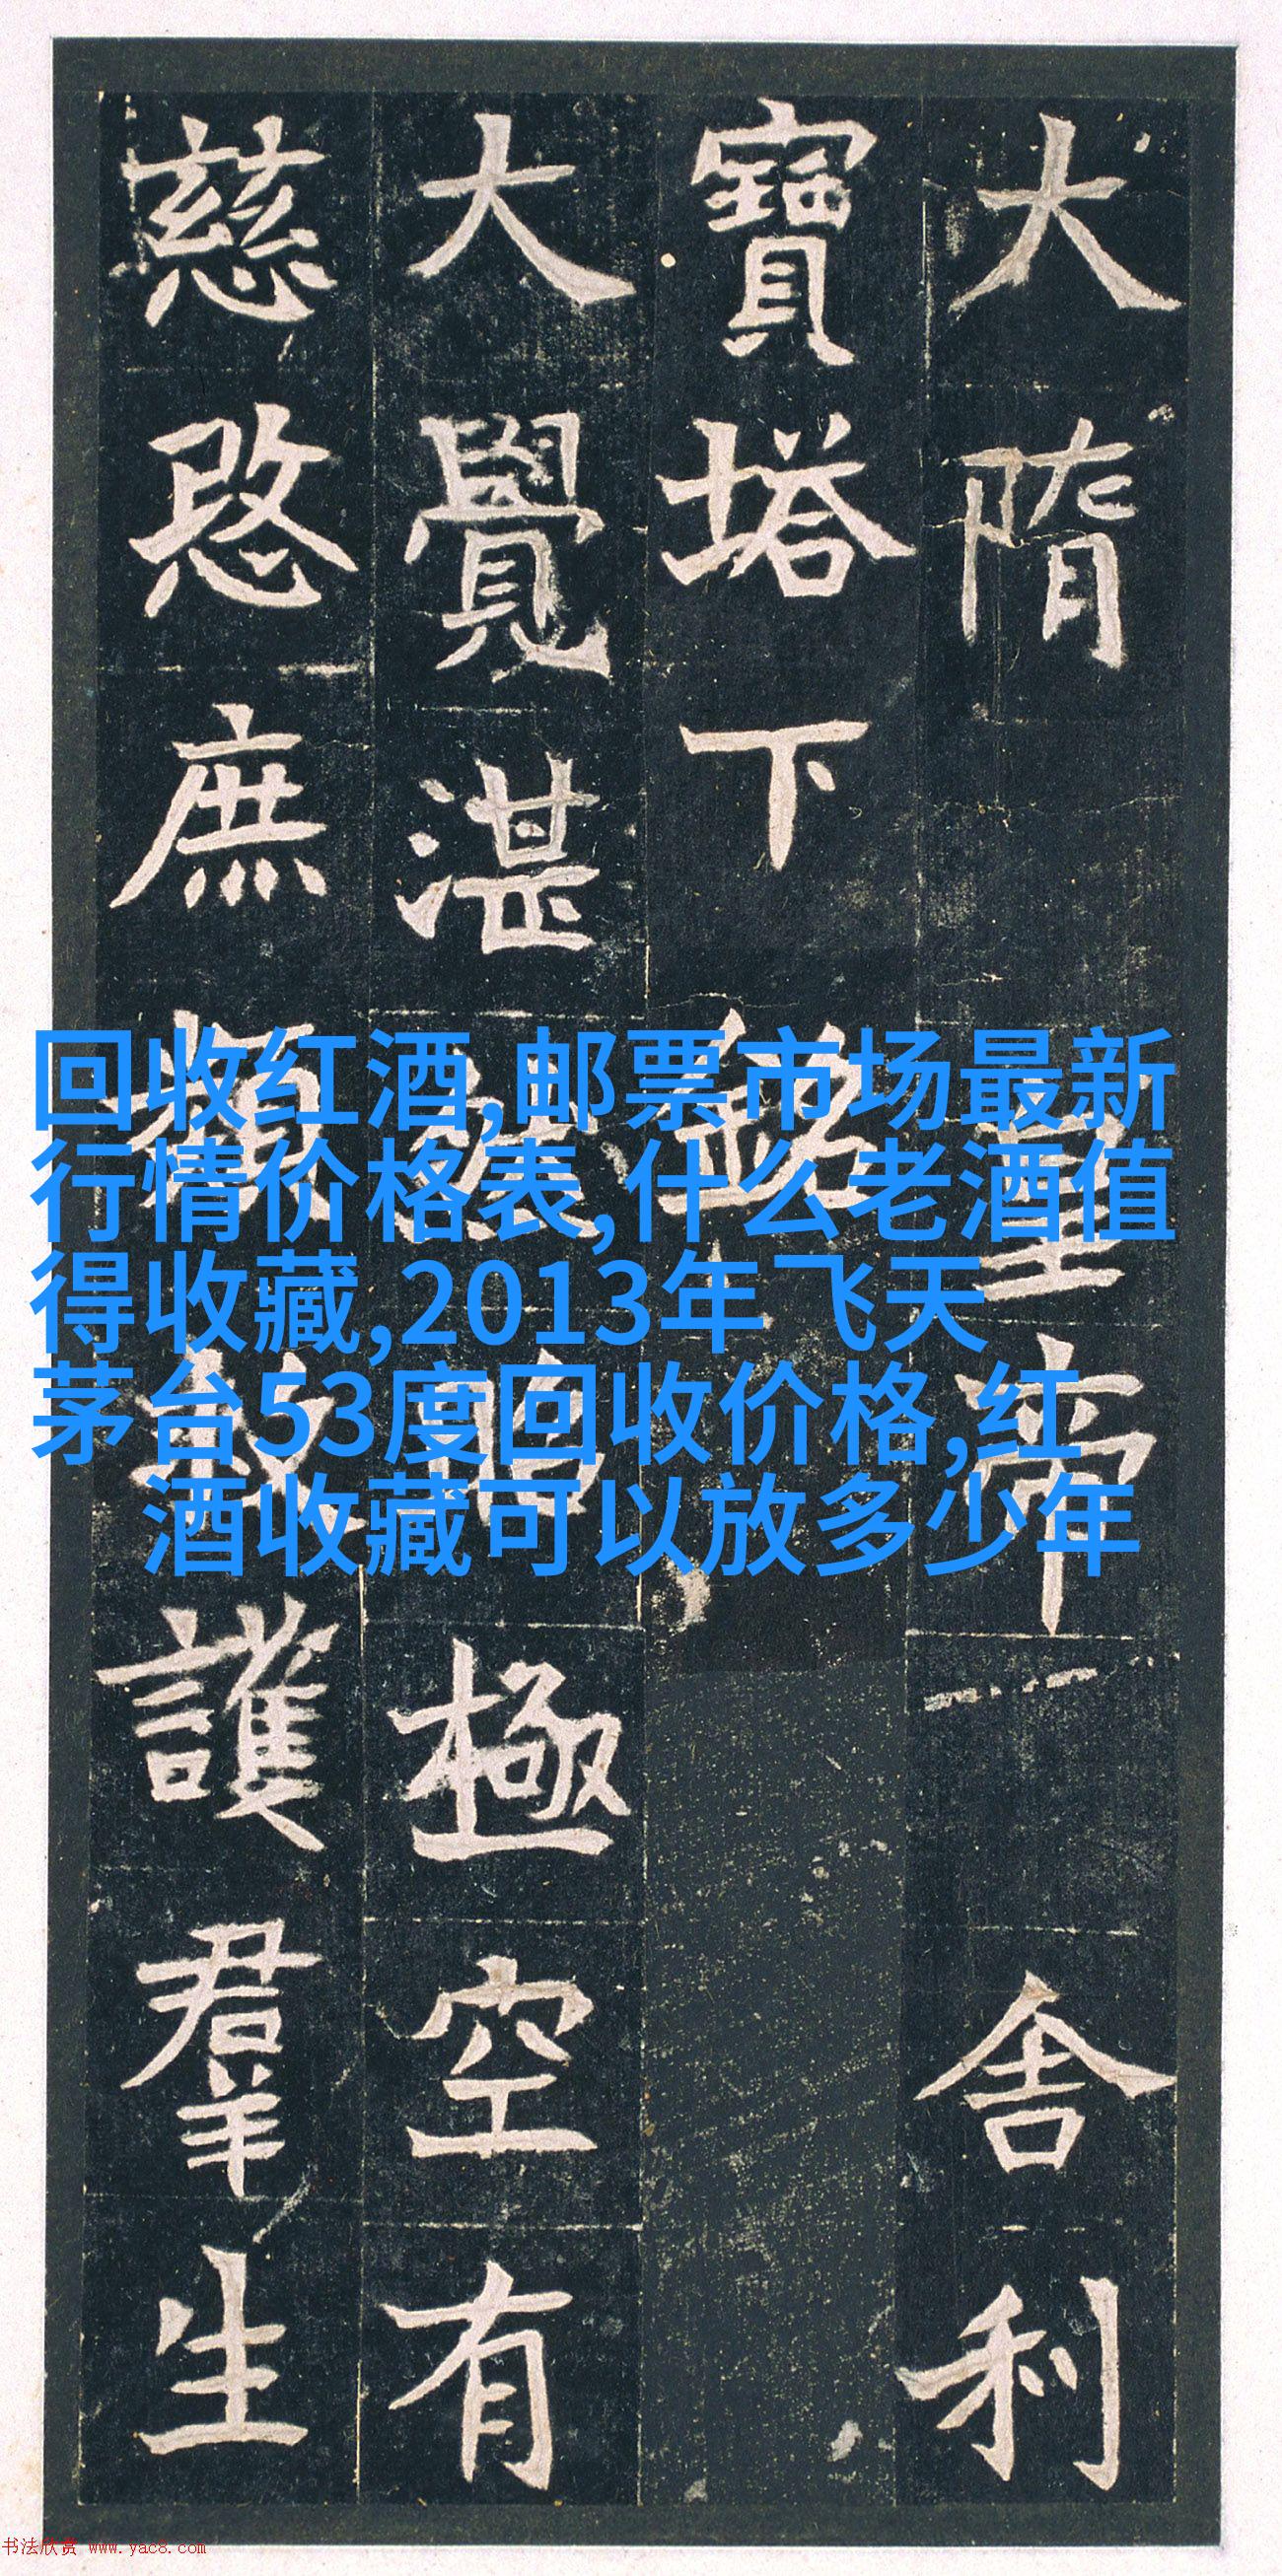 大隋皇帝舍利
寶塔下銘
大覺湛極空有
慈愍庶類護羣生
回收红酒,邮票市场最新
行情价格表,什么老酒值
得收藏,2013年飞天
茅台53度回收价格,红
酒收藏可以放多少年
书法欣赏 www.yac8.com